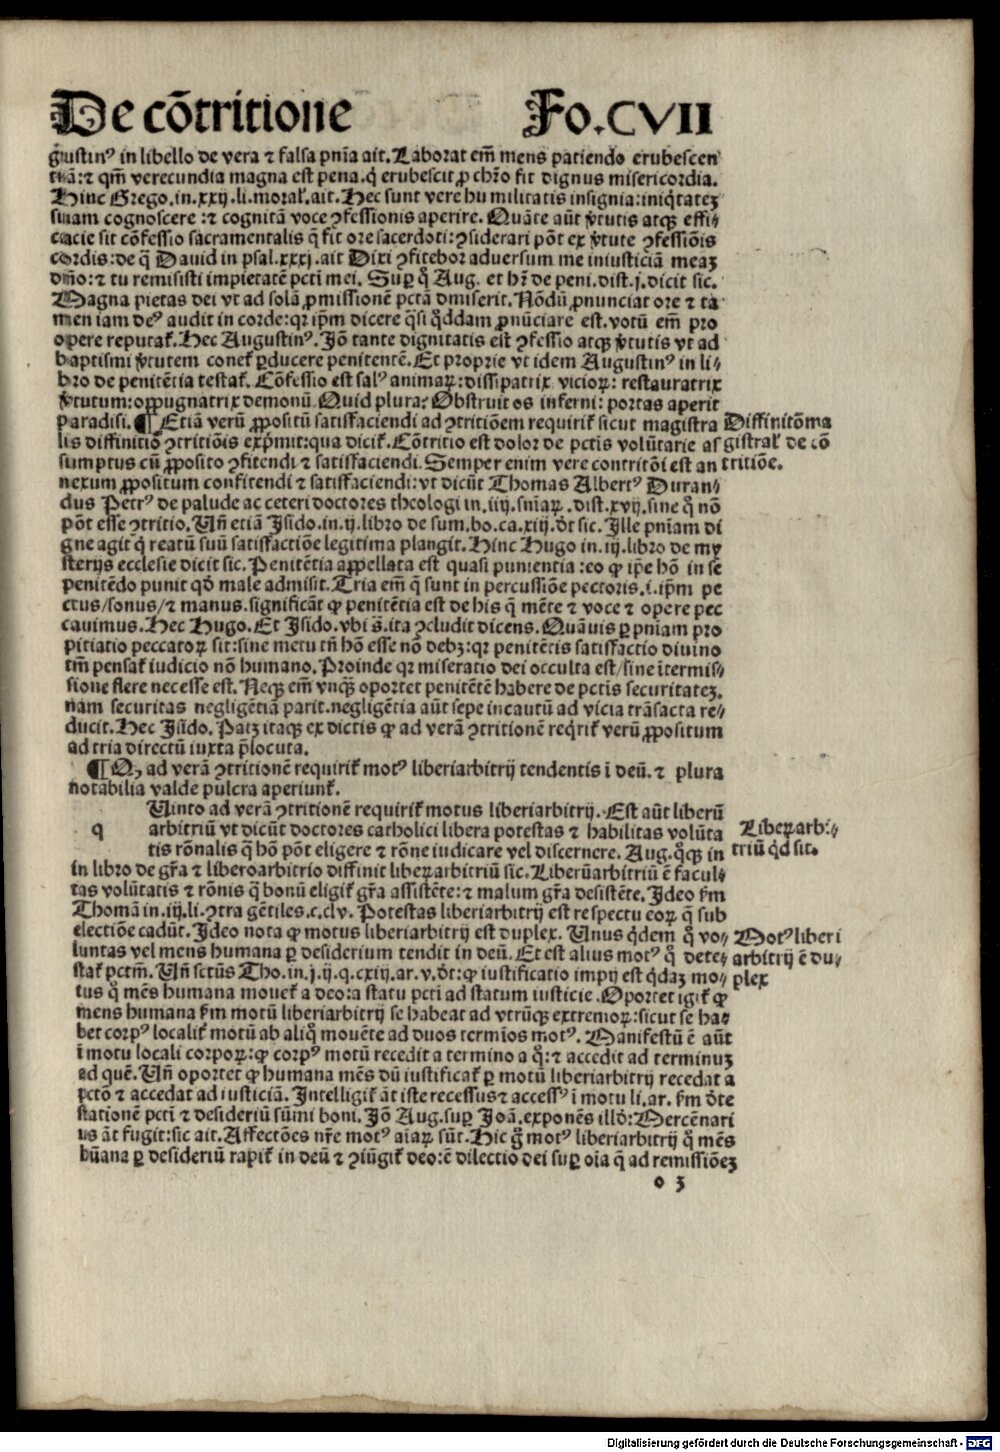 De cõtritione Fo.CVII
g̃ustinꝰ in libello de vera ⁊ falsa pñia ait. Laborat em̃ mens patiendo erubescen
tiã:⁊ qm̃ verecundia magna est pena. q̇ erubescit ꝓ chr̃o fit dignus misericordia.
Hinc Grego. in. xxij. li. moral̃. ait. Hec sunt vere humilitatis insignia: iniq̇tatez
suam cognoscere :⁊ cognitã voce ꝯfessionis aperire. Quãte aũt v̓tutis atqꝫ effi⸗
cacie sit cõfessio sacramentalis q̃ fit ore sacerdoti: ꝯsiderari põt ex v̓tute ꝯfessiõis
cordis: de q̃ Dauid in psal. xxxj. ait Dixi ꝯfitebor aduersum me iniusticiã meaꝫ
dño: ⁊ tu remisisti impietatẽ pcti mei. Suꝑ qͦ Aug. et hr̃ de peni. dist. j. dicit sic.
Magna pietas dei vt ad solã ꝓmissionẽ pctã dimiserit. Nõdũ ꝓnunciat ore ⁊ ta
men iam deꝰ audit in corde: qꝛ ip̃m dicere q̃si qͦddam ꝓnũciare est. votũ em̃ pro
opere reputat̃. Hec Augustinꝰ. Jõ tante dignitatis est ꝯfessio atqꝫ v̓tutis vt ad
baptismi v̓tutem conet̃ ꝑducere penitentẽ. Et proprie vt idem Augustinꝰ in li⸗
bro de penitẽtia testat̃. Cõfessio est salꝰ animaꝝ: dissipatrix vicioꝝ: restauratrix
v̓tutum: oppugnatrix demonũ. Quid plura? Obstruit os inferni: portas aperit
paradisi. ¶ Etiã verũ ꝓpositũ satisfaciendi ad ꝯtritiõem requirit̃ sicut magistra
lis diffinitio ꝯtritiõis exp̃mit: qua dicit̃. Cõtritio est dolor de pctis volũtarie as
sumptus cũ ꝓposito ꝯfitendi ⁊ satisfaciendi. Semper enim vere contritõi est an
nexum ꝓpositum confitendi ⁊ satisfaciendi: vt dicũt Thomas Albertꝰ Duran⸗
dus Petrꝰ de palude ac ceteri doctores theologi in. iiij. sniaꝝ. dist. xvij. sine qͦ nõ
põt esse ꝯtritio. Uñ etiã Jsido. in. ij. libro de sum. bo. ca. xiij. dt̓ sic. Jlle pñiam di
gne agit q̇ reatũ suũ satisfactiõe legitima plangit. Hinc Hugo in. iij. libro de my
sterijs ecclesie dicit sic. Penitẽtia appellata est quasi punientia: eo ꝙ ip̃e hõ in se
penitẽdo punit qd̓ male admisit. Tria em̃ q̃ sunt in percussiõe pectoris. i. ip̃m pe
ctus/sonus/⁊ manus. significãt ꝙ penitẽtia est de his q̃ mẽte ⁊ voce ⁊ opere pec
cauimus. Hec Hugo. Et Jsido. vbi s̃. ita ꝯcludit dicens. Quãuis ꝑ pñiam pro
pitiatio peccatoꝝ sit: sine metu tñ hõ esse nõ debꝫ: qꝛ penitẽtis satisfactio diuino
tm̃ pensat̃ iudicio nõ humano. Proinde qꝛ miseratio dei occulta est/sine ĩtermis⸗
sione flere necesse est. Neqꝫ em̃ vnq̃ꝫ oportet penitẽtẽ habere de pctis securitateꝫ.
nam securitas negligẽtiã parit. negligẽtia aũt sepe incautũ ad vicia trãsacta re⸗
ducit. Hec Jsido. Patꝫ itaqꝫ ex dictis ꝙ ad verã ꝯtritionẽ req̇rit̃ verũ ꝓpositum
ad tria directũ iuxta p̃locuta.
¶ Qꝫ ad verã ꝯtritionẽ requirit̃ motꝰ liberiarbitrij tendentis ĩ deũ. ⁊ plura
notabilia valde pulcra aperiunt̃.
q Uinto ad verã ꝯtritionẽ requirit̃ motus liberiarbitrij. Est aũt liberũ
arbitriũ vt dicũt doctores catholici libera potestas ⁊ habilitas volũta
tis rõnalis q̃ hõ põt eligere ⁊ rõne iudicare vel discernere. Aug. qͦqꝫ in
libro de gr̃a ⁊ liberoarbitrio diffinit libeꝝarbitriũ sic. Liberũarbitriũ ẽ facul⸗
tas volũtatis ⁊ rõnis q̃ bonũ eligit̃ gr̃a assistẽte: ⁊ malum gr̃a desistẽte. Jdeo ẜm
Thomã in. iij. li. ꝯtra gẽtiles. c. clv. Potestas liberiarbitrij est respectu eoꝝ q̃ sub
electiõe cadũt. Jdeo nota ꝙ motus liberiarbitrij est duplex. Unus q̇dem qͦ vo⸗
luntas vel mens humana ꝑ desiderium tendit in deũ. Et est alius motꝰ qͦ dete⸗
stat̃ pctm̃. Uñ sctũs Tho. in. j. ij. q. cxiij. ar. v. dt̓: ꝙ iustificatio impij est q̇daꝫ mo⸗
tus qͦ mẽs humana mouet̃ a deo: a statu pcti ad statum iusticie. Oportet igit̃ ꝙ
mens humana ẜm motũ liberiarbitrij se habeat ad vtrũqꝫ extremoꝝ: sicut se ha⸗
bet corpꝰ localit̃ motũ ab aliqͦ mouẽte ad duos termĩos motꝰ. Manifestũ ẽ aũt
ĩ motu locali corpoꝝ: ꝙ corpꝰ motũ recedit a termino a qͦ: ⁊ accedit ad terminuꝫ
ad quẽ. Uñ oportet ꝙ humana mẽs dũ iustificat̃ ꝑ motũ liberiarbitrij recedat a
pctõ ⁊ accedat ad iusticiã. Jntelligit̃ ãt iste recessus ⁊ accessꝰ ĩ motu li. ar. ẜm dt̓e
stationẽ pcti ⁊ desideriũ sũmi boni. Jõ Aug. suꝑ Joã. exponẽs illd̓: Mercẽnari
us ãt fugit: sic ait. Affectões nr̃e motꝰ aiaꝝ sũt. Hic g̃ motꝰ liberiarbitrij qͦ mẽs
hũana ꝑ desideriũ rapit̃ in deũ ⁊ ꝯiũgit̃ deo: ẽ dilectio dei suꝑ oĩa q̃ ad remissiõeꝫ
o 3
Diffinitõ ma
gistral̃ de cõ
tritiõe.
Libeꝝarbi⸗
triũ qd̓ sit.
Motꝰ liberi
arbitrij ẽ du⸗
plex
Digitalisierung gefördert durch die Deutsche Forschungsgemeinschaft - DFG